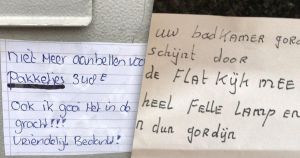 niet meer aanbellen voo
Pakketjes
Ook ik gooi het in de
gracht!!!
Vriendelijk Bedankt!
uw badkamer gord
schijnt door
de FLAT Kijk MEE
HEEL FELLE LAMP en
n dun gordijn